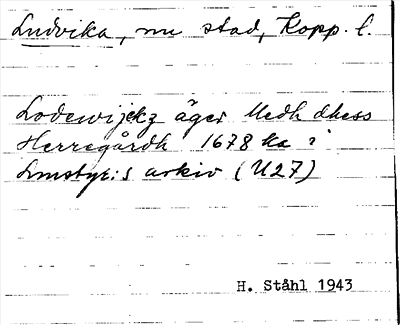 Ludvika, nu stad, Kopp. l.
Lodewijckz äger Medh dhess
Herregårdh 1678 ka i
Lmstyr:s arkiv (U27)
H. Ståhl 1943